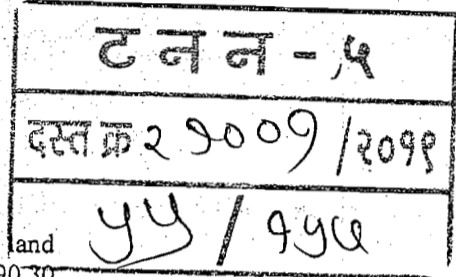 ट न न - ५
दस्त क्र २१००१ /२०१९
५५ / १५७
land
90.30